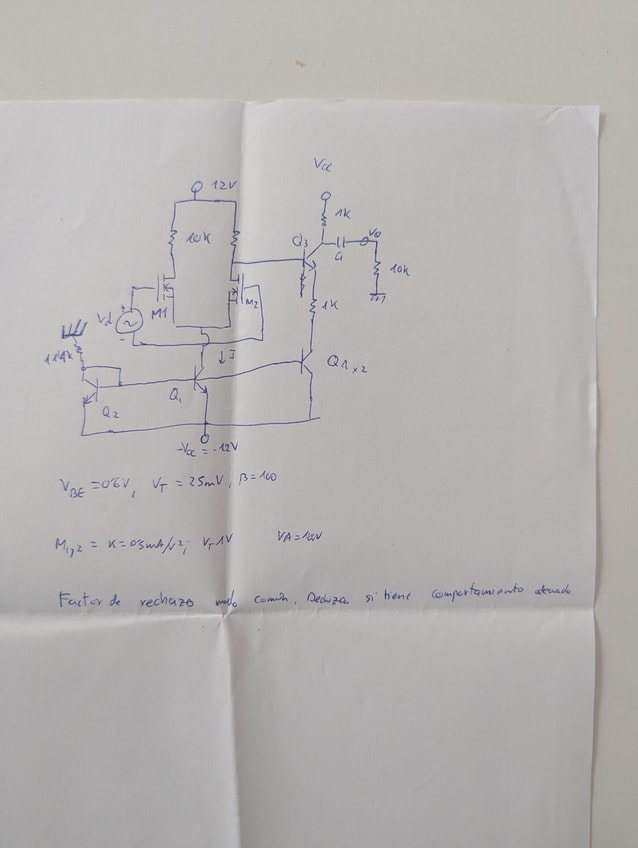 Vcc
12V
1K
Q3
Vo
10K
C1
10K
M1
M2
1K
Vd
+
-
↓ I
11'4K
Q1x2
Q1
Q2
-Vcc = -12V
VBE = 0'6V, VT = 25mV, β=100
M1,2 = K = 0'5mA/V2; VT 1V VA=100V
Factor de rechazo modo común. Deduzca si tiene comportamiento adecuado